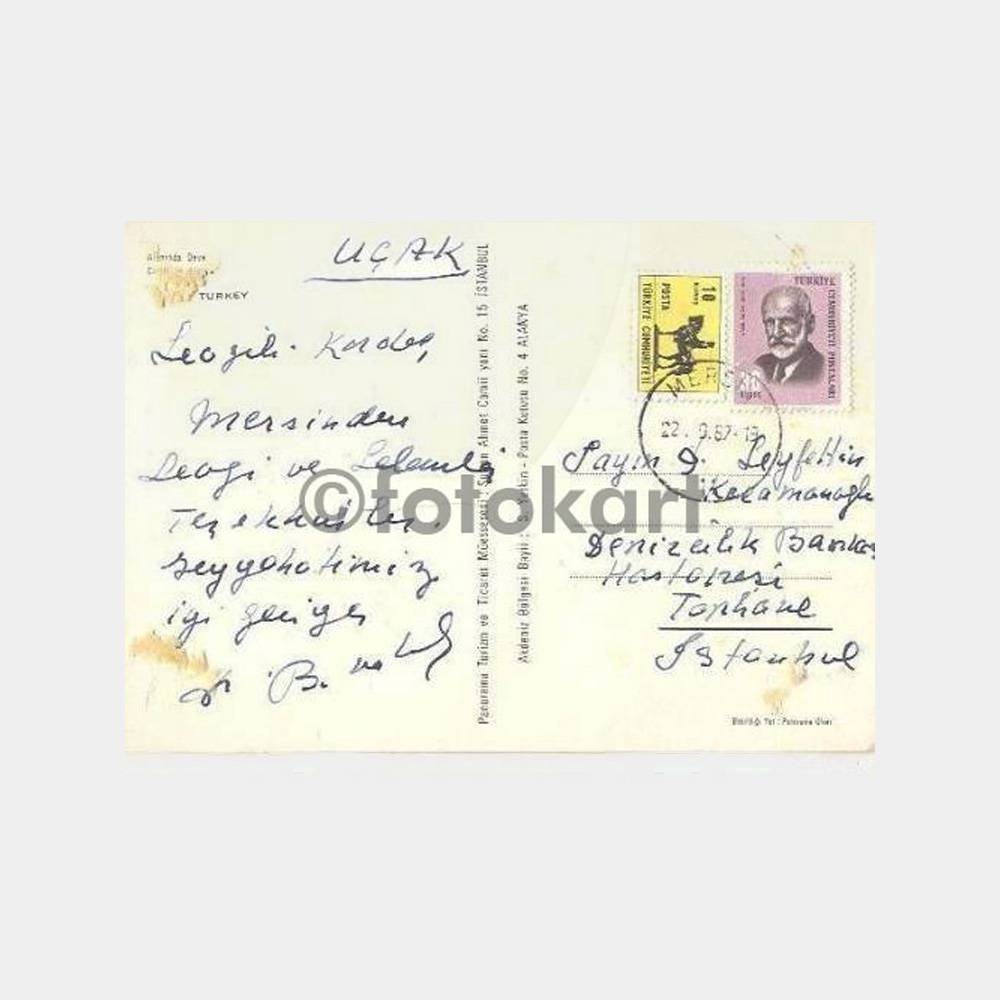 UÇAK
Alanyada Deve
TURKEY
Sevgili Kardeş
Mersinden
Sevgi ve Selamlar
seyyahatimiz
iyi geçiyor
B.
Panorama Turizm ve Ticaret Müessesesi : Sultan Ahmet Camii yanı No. 15 İSTANBUL
Akdeniz Bölgesi Bayii : S. Yetkin - Posta Kutusu No. 4 ALANYA
10
KURUŞ
POSTA
TÜRKİYE CUMHURİYETİ
TÜRKİYE CUMHURİYETİ POSTALARI
22. 9.67-19
Sayın Seyfettin
Karamanoğlu
Denizcilik Bankası
Hastanesi
Tophane
İstanbul
©fotokart